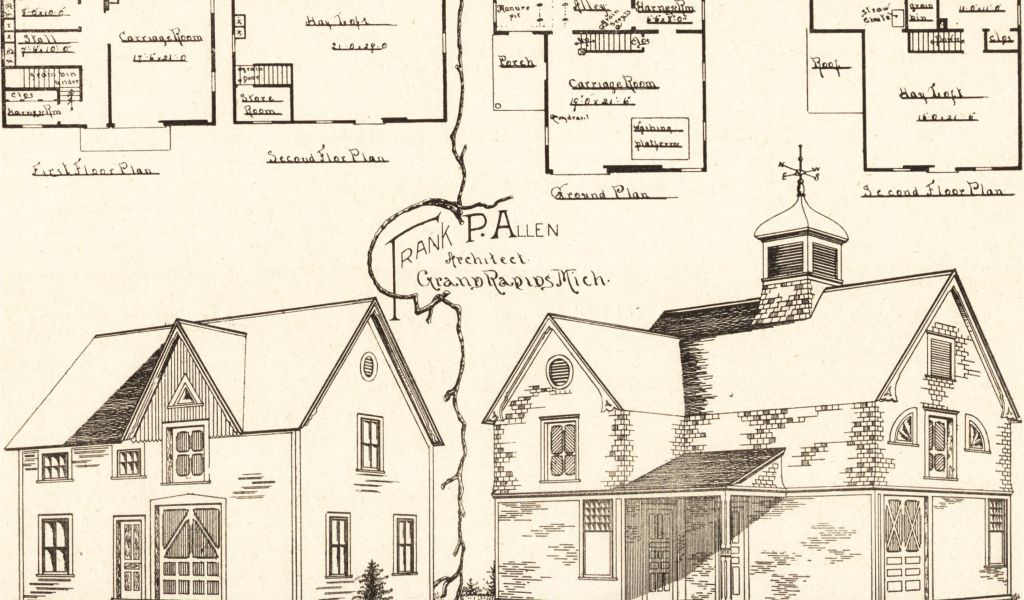 Stall
7'-6"x10'-0"
grain bin
under
Clos
Harness Rm
Carriage Room
First Floor Plan
Hay Loft
21'-0"x29'-0"
Door
Store
Room
Second Flor Plan
Manure
pit
Alley
Harness Rm
Clos
Porch
Carriage Room
19'-0"x21'-6"
Hydrant
Washing
platform
Ground Plan
straw
chute
grain
bin
Down
Clos
Roof
Hay Loft
Second Floor Plan
Frank P. Allen
Architect.
Grand Rapids, Mich.